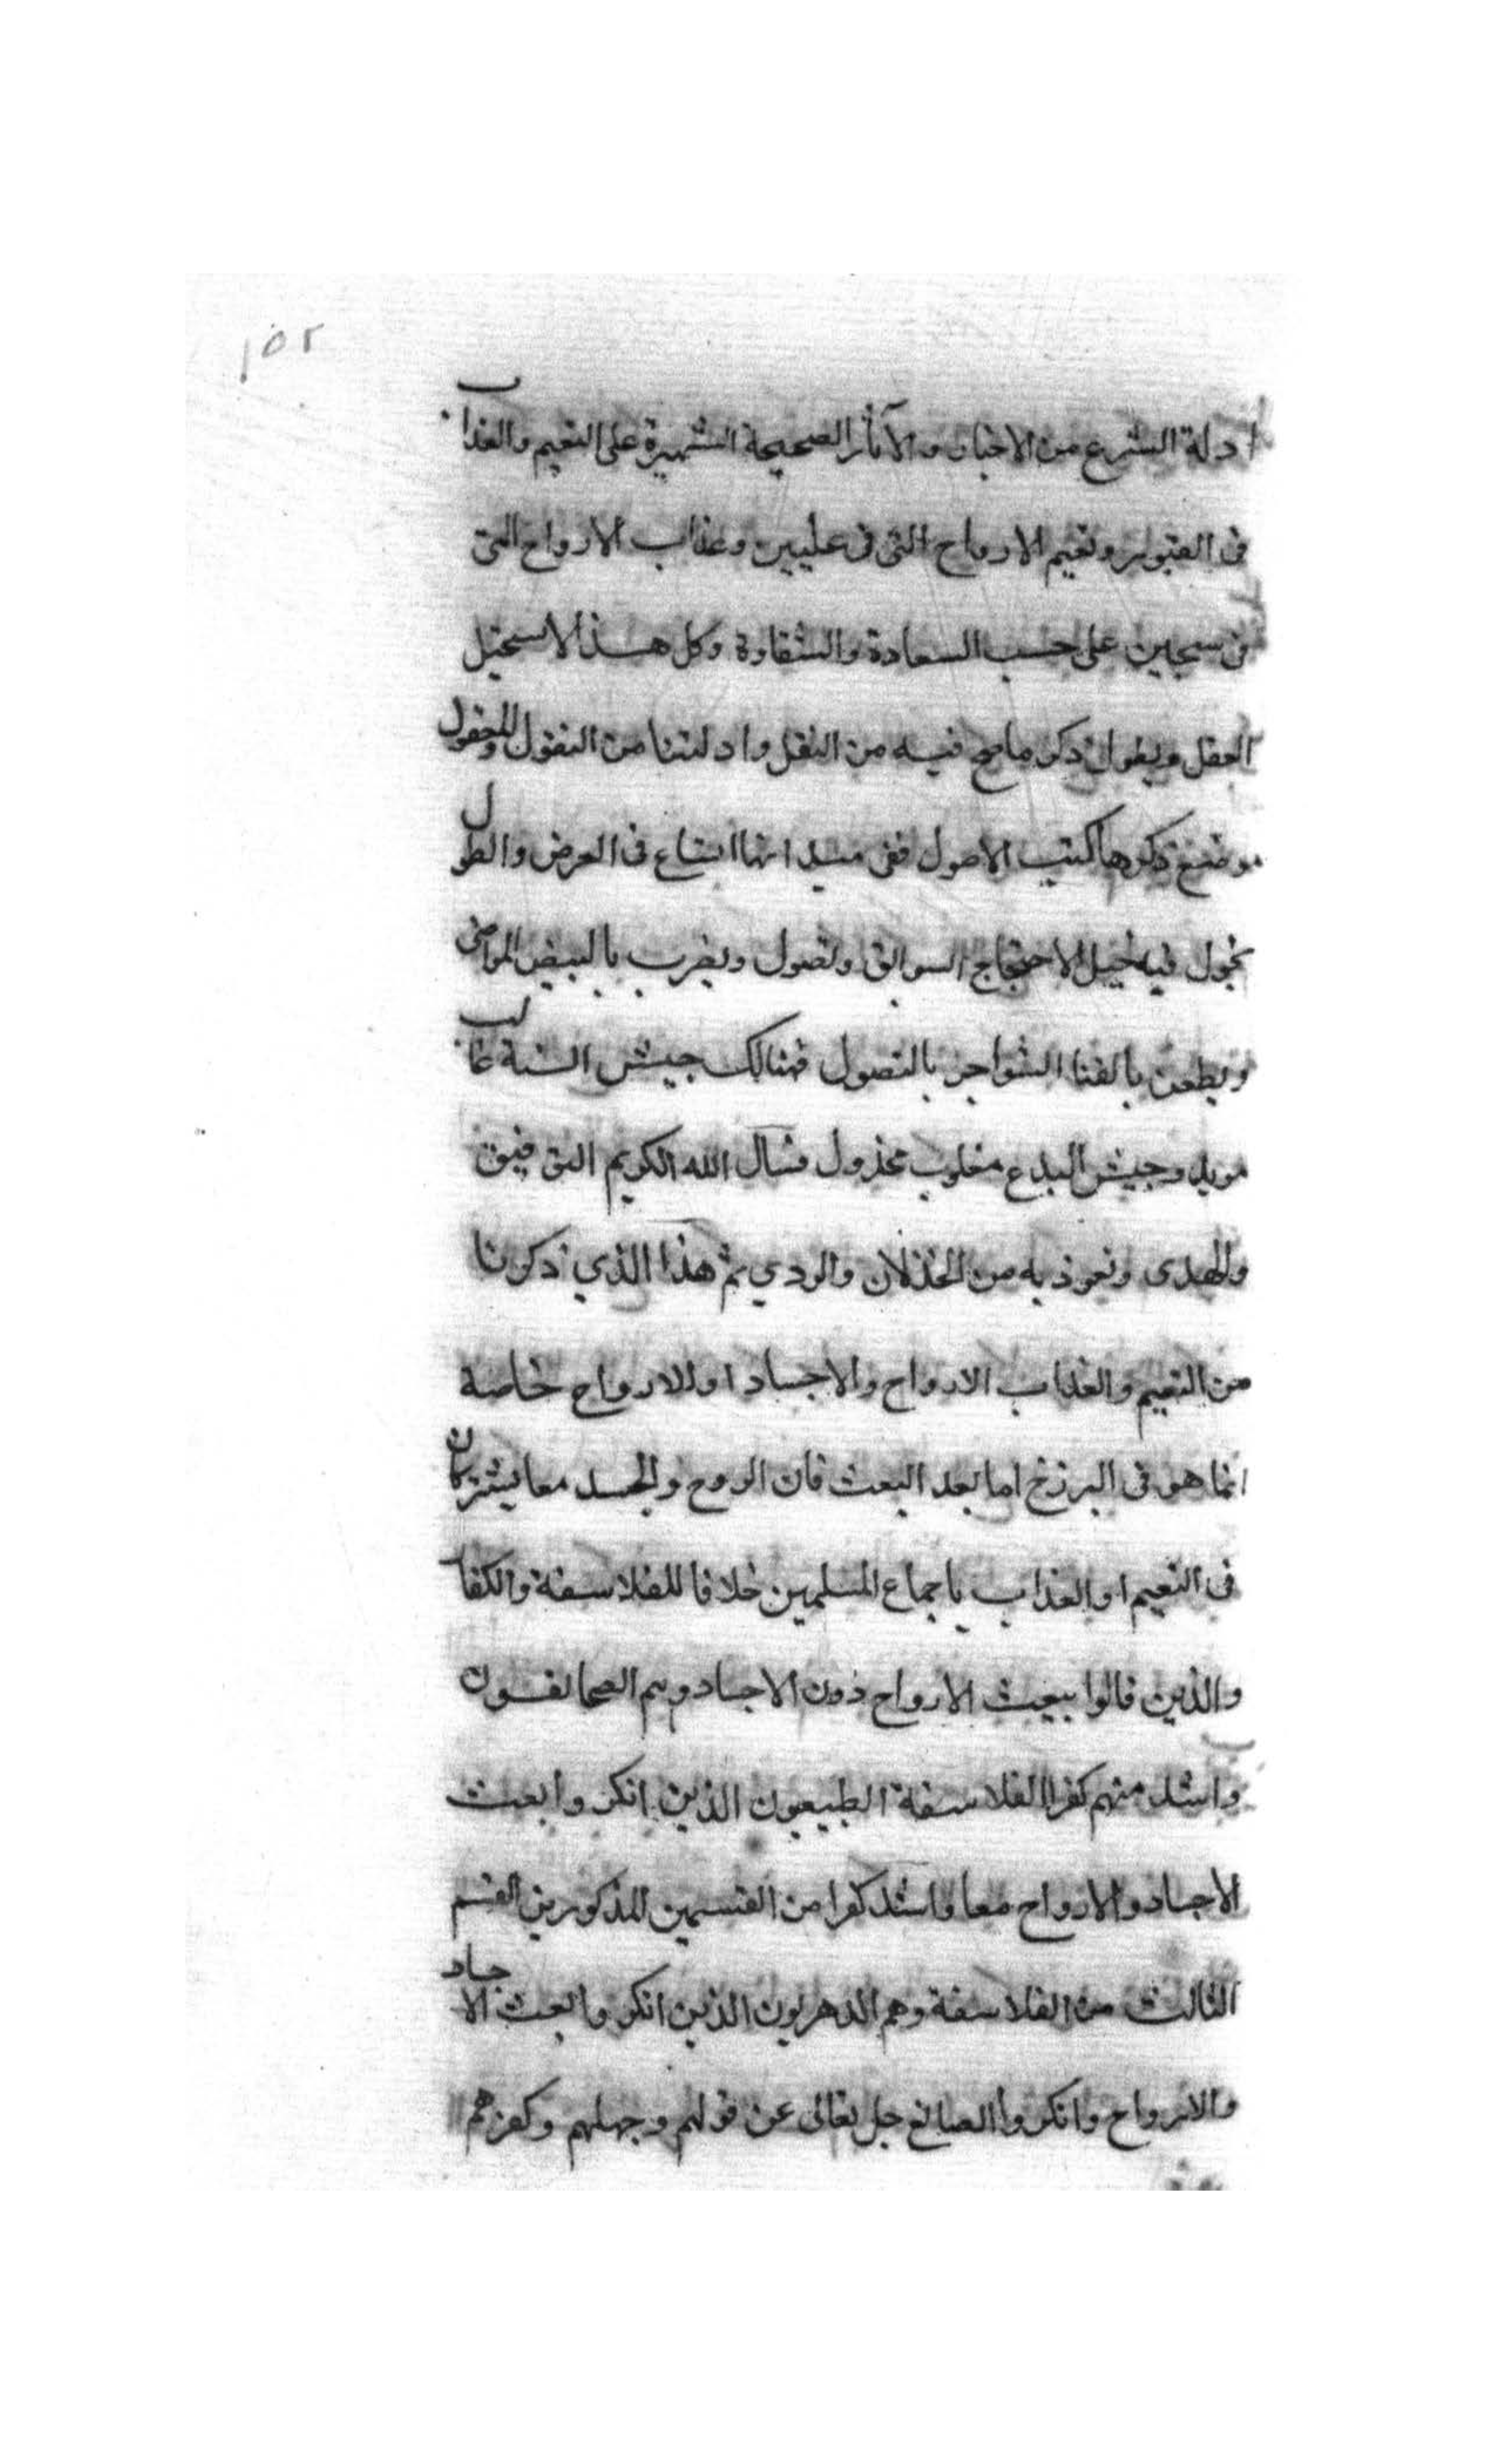 ١٥٢
ادلة الشرع من الاخبار والآثار الصحيحة الشهيرة على النعيم والعذاب
فى القبور ونعيم الارواح التى فى عليين وعذاب الارواح التى
فى سجين على حسب السعادة والشقاوة وكل هذا لا يستحيل
العقل ويطول ذكر ما صح فيه من النقل وادلتنا من النقول والمعقول
موضع ذكرها كتب الاصول ففى ميدانها اتساع فى العرض والطول
تجول فيه خيل الاحتجاج السوابق وتصول ويضرب بالبيض المواضى
ويطعن بالقنا الشواجر بالنصول فهنالك جيش السنة غالب
مويد وجيش البدع مغلوب مخذول فنسال الله الكريم التوفيق
والهدى ونعوذ به من الخذلان والردي ثم هذا الذي ذكرنا
من النعيم والعذاب الارواح والاجساد او للارواح خاصة
انما هو فى البرزخ اما بعد البعث فان الروح والجسد معا يشتركان
فى النعيم او العذاب باجماع المسلمين خلافا للفلاسفة والكفار
والذين قالوا ببعث الارواح دون الاجساد وهم
واشد منهم كفرا الفلاسفة الطبيعيون الذين انكروا بعث
الاجساد والارواح معا واشد كفرا من القسمين المذكورين القسم
الثالث من الفلاسفة وهم الدهريون الذين انكروا بعث الاجساد
والارواح وانكروا الصانع جل تعالى عن قولهم وجهلهم وكفرهم